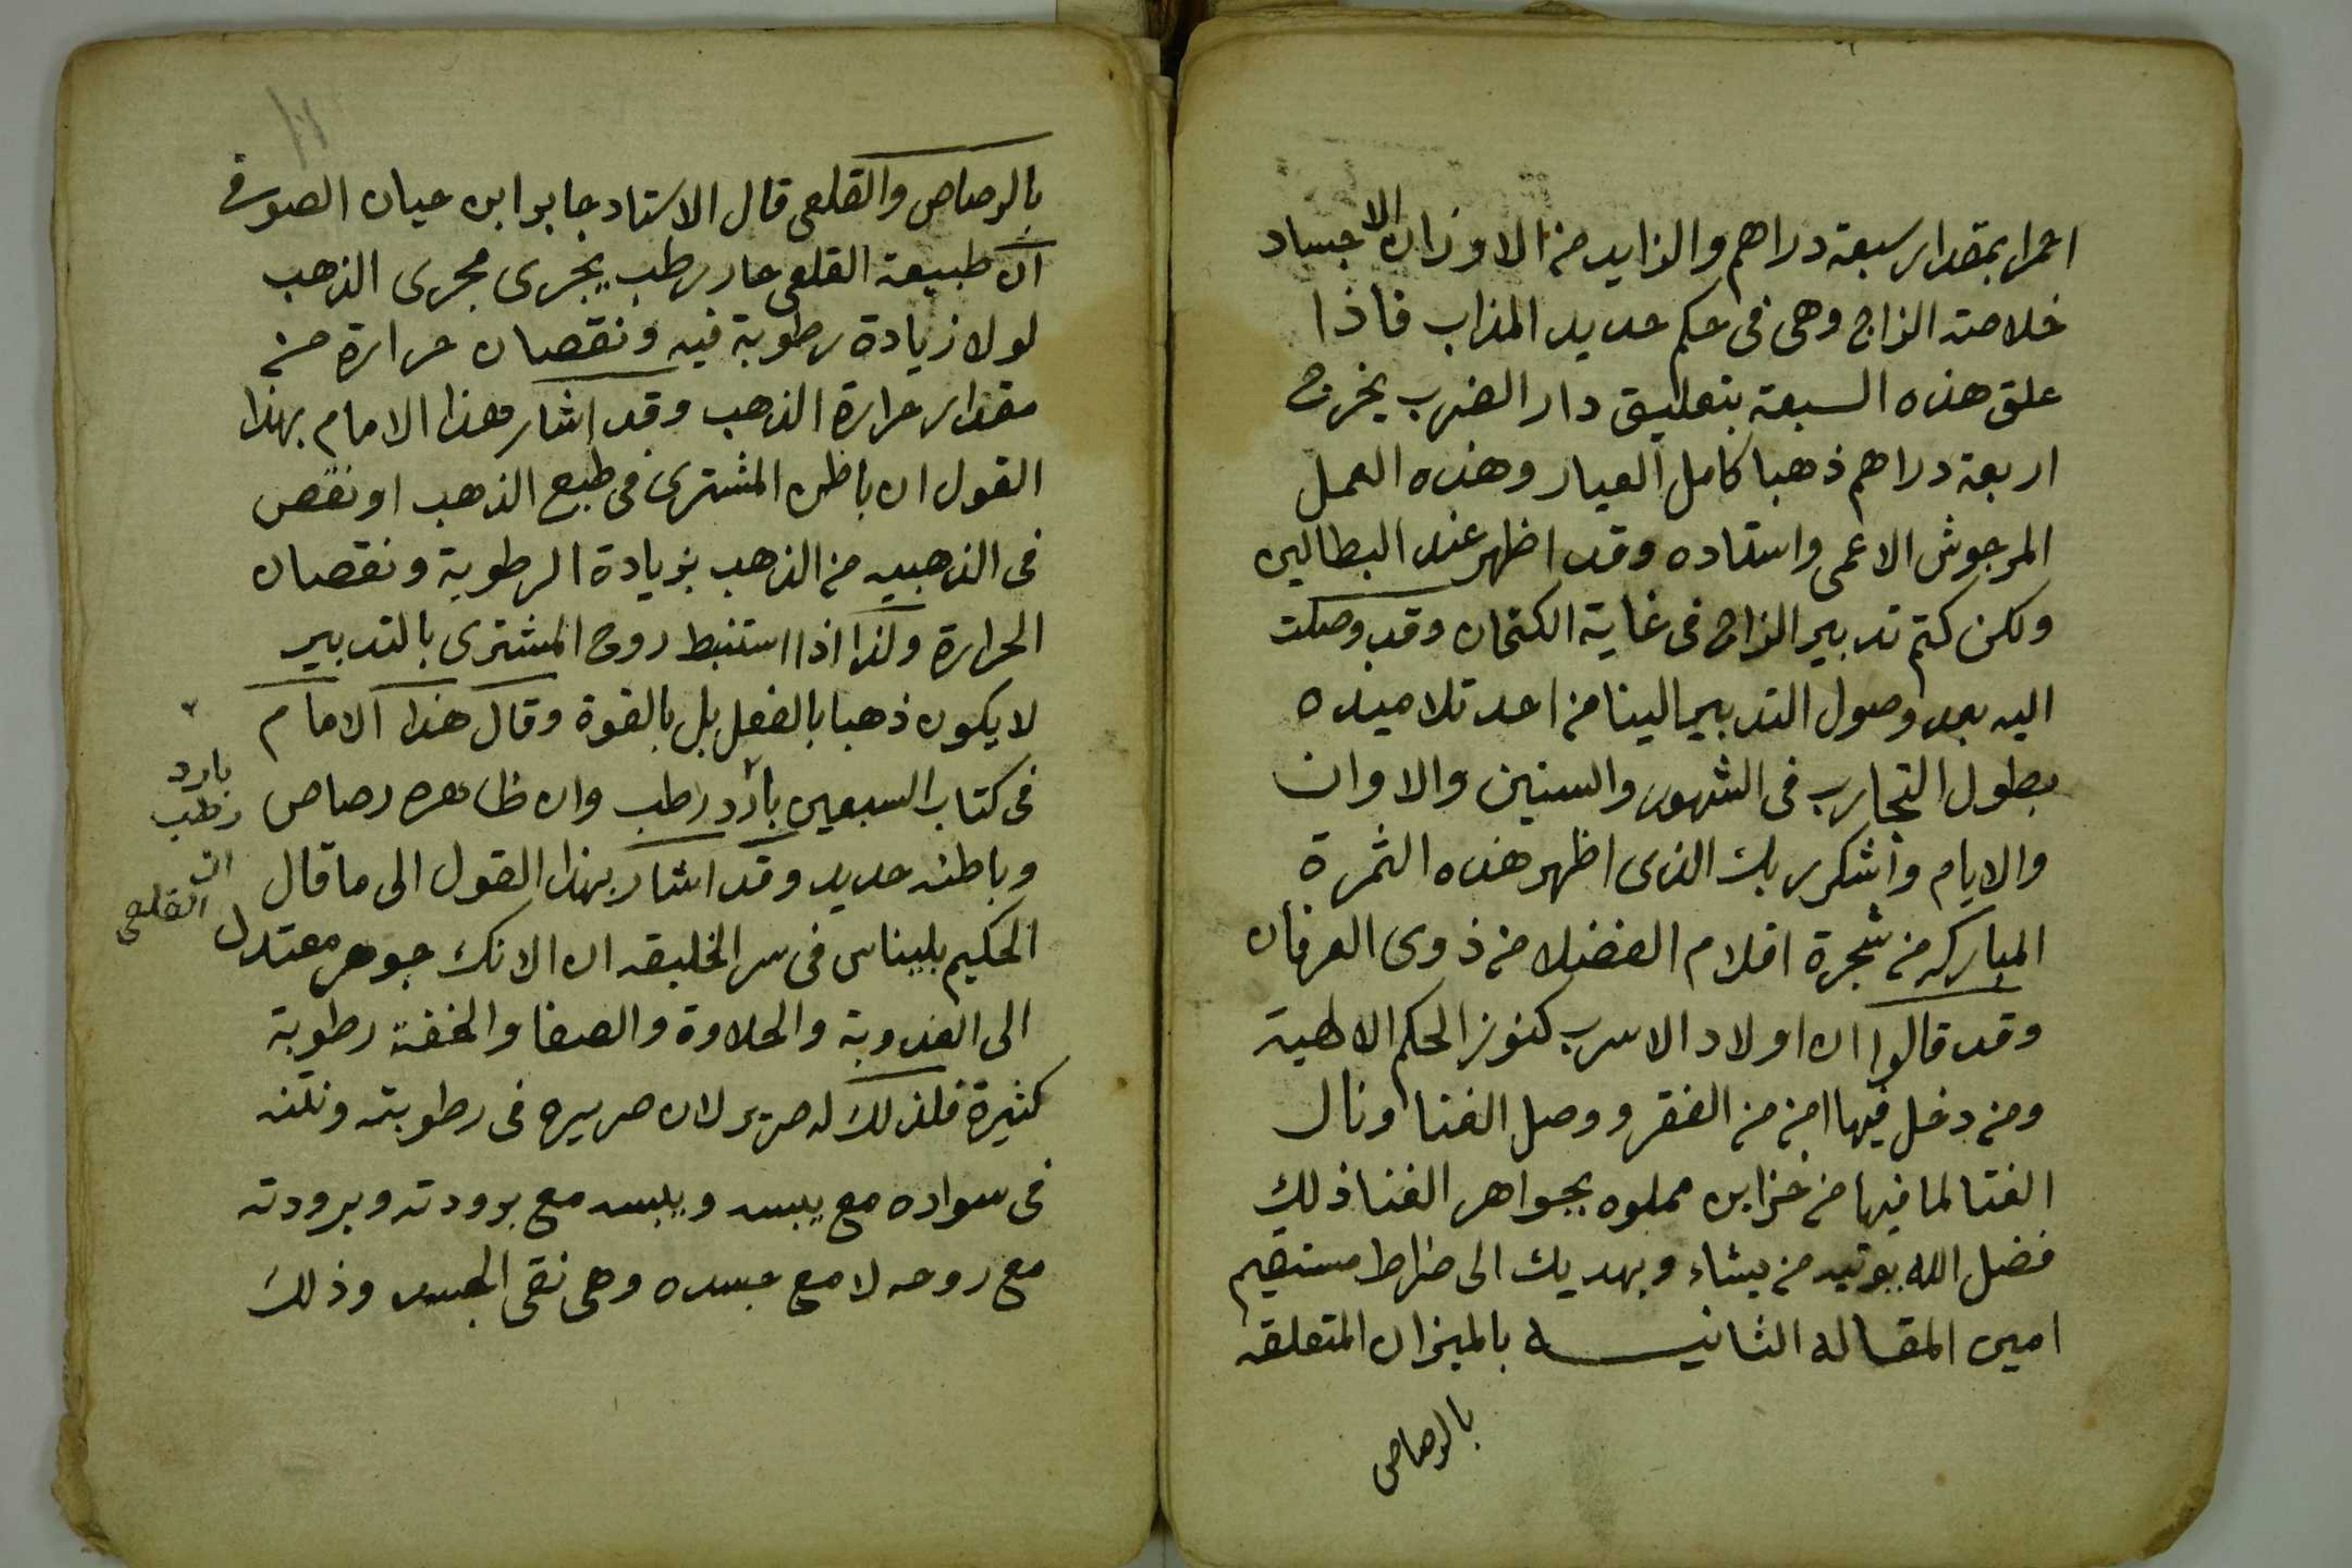 احمرا بمقدار سبعة دراهم والزايد من الاوزان الاجساد
خلاصة الزاج وهى فى حكم حديد المذاب فاذا
علق هذه السبعة بتعليق دار الضرب يخرج
اربعة دراهم ذهبا كامل العيار وهذه العمل
المرجوش الاعمى واستاده وقد اظهر عند البطالين
ولكن كتم تدبير الزاج فى غاية الكتمان وقد وصلت
اليه بعد وصول التدبير الينا من احد تلاميذه
بطول التجارب فى الشهور والسنين والاوان
والايام واشكر ربك الذى اظهر هذه الثمرة
المباركه من شجرة اقلام الفضلا من ذوى العرفان
وقد قالوا ان اولاد الاسرب كنوز الحكم الالهية
ومن دخل فيها امن من الفقر ووصل الغنا ونال
الفتا لما فيها من خزاين مملوه بجواهر الغنا ذلك
فضل الله يوتيه من يشاء ويهديك الى صراط مستقيم
امين المقاله الثانيـــه بالميزان المتعلقه
بالرصاص
بالرصاص والقلعى قال الاستاد جابر ابن حيان الصوفى
ان طبيعة القلعى حار رطب يجرى مجرى الذهب
لولا زيادة رطوبة فيه ونقصان حرارة من
مقدار حرارة الذهب وقد اشار هذا الامام بهذا
القول ان باطن المشترى فى طبع الذهب او نقص
فى الذهبيه من الذهب بزيادة الرطوبة ونقصان
الحرارة ولذا اذا استنبط روح المشترى بالتدبير
لا يكون ذهبا بالفعل بل بالقوة وقال هذا الامام
فى كتاب السبعين بارد رطب وان ظاهره رصاص
بارد
رطب
وباطنه حديد وقد اشار بهذا القول الى ما قال
ان
القلعى
الحكيم بليناس فى سر الخليقه ان الانك جوهر معتدل
الى العذوبة والحلاوة والصفا والخفة رطوبة
كثيرة فلذلك له صرير لان صريره فى رطوبته ونتنه
فى سواده مع يبسه ويبسه مع برودته وبرودته
مع روحه لا مع جسده وهى نقى الجسد وذلك